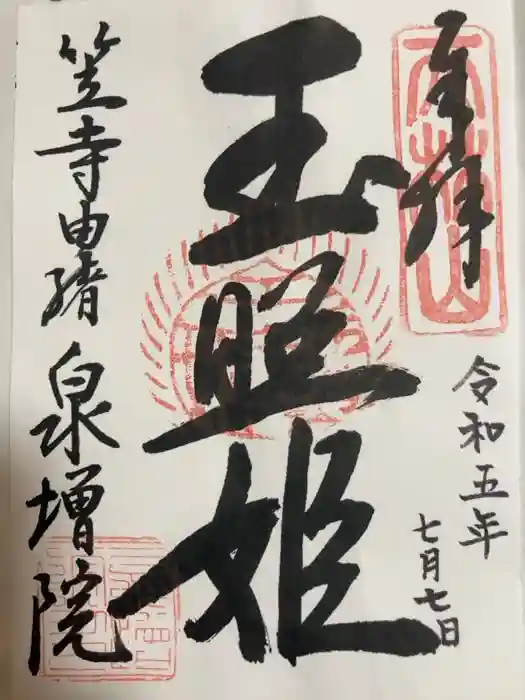 奉拝
令和五年
七月七日
玉照姫
笠寺由緒
泉増院